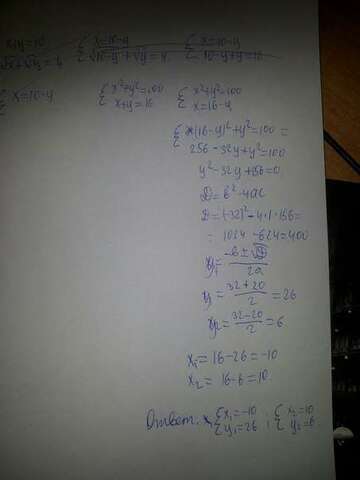 x+y=10 { x=10-y { x=10-y
√x+√y=4 √10-y+√y=4 10-y+y=16
{ x=10-y { x²+y²=100 { x²+y²=100
x+y=16 x=16-y
{ (16-y)²+y²=100 =
256-32y+y²=100
y²-32y+156=0
D=b²-4ac
D=(-32)²-4·1·156=
=1024-624=400
y₁=-b±√D/2a
y=32+20/2=26
y₂=32-20/2=6
x₁=16-26=-10
x₂=16-6=10
Ответ: { x₁=-10 ; { x₂=10
y₁=26 y₂=6